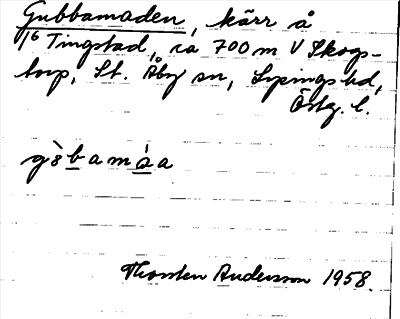 Gubbamaden, kärr å
1/6 Tingstad, ca 700 m V Skogs-
torp, St. Åby sn, Lysings hd,
Östg. l.
Thorsten Andersson 1958.